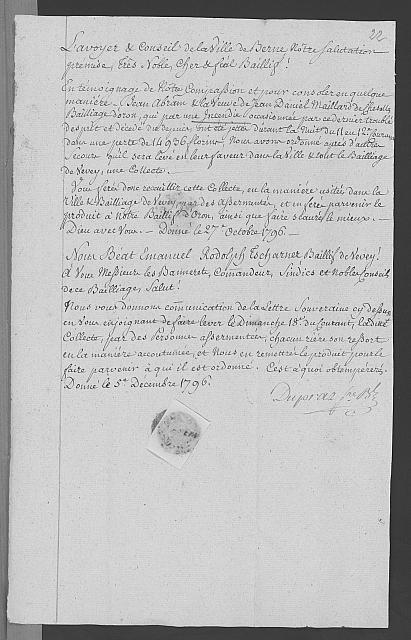 22
L'avoyer & Conseil de la Ville de Berne Notre Salutation
premise, très Noble, Cher & féal Baillif!
En témoignage de Notre Compassion et pour consoler en quelque
manière Jean Abram & la Veuve de Jean Daniel Maillard de
Bailliage d'Oron, qui par une Incendie occasionnée par ce dernier troublé
d'esprit et décédé du depuis ont été
dans une perte de 14936 florins. Nous avons ordonné après d'autres
Secours qu'il sera levé en leur faveur dans la Ville & tout le Bailliage
de Vevey, une Collecte.
Vous ferés donc recueillir cette Collecte, en la manière usitée dans la
Ville & Bailliage de Vevey, par des assermentés, et en feré parvenir le
produit à Notre Baillif d'Oron, ainsi que faire scaurés le mieux.
Dieu avec Vous. Donné le 27e Octobre 1796.
Nous Béat Emanuel Rodolph Tscharner Baillif de Vevey!
À Vous Messieurs les Bannerets, Comandeurs, Sindics et Nobles Conseil
de ce Bailliage, Salut!
Nous vous donnons communication de la Lettre Souveraine cy dessus
en Vous enjoignant de faire lever le Dimanche 18e du Courant, la dite
Collecte, par des Personnes assermentées, chacun rière son ressort
en la manière accoutumée, et Nous en remettre le produit pour le
faire parvenir à qui il est ordonné. C'est à quoi obtempererés
Donné le 5e Decembre 1796.